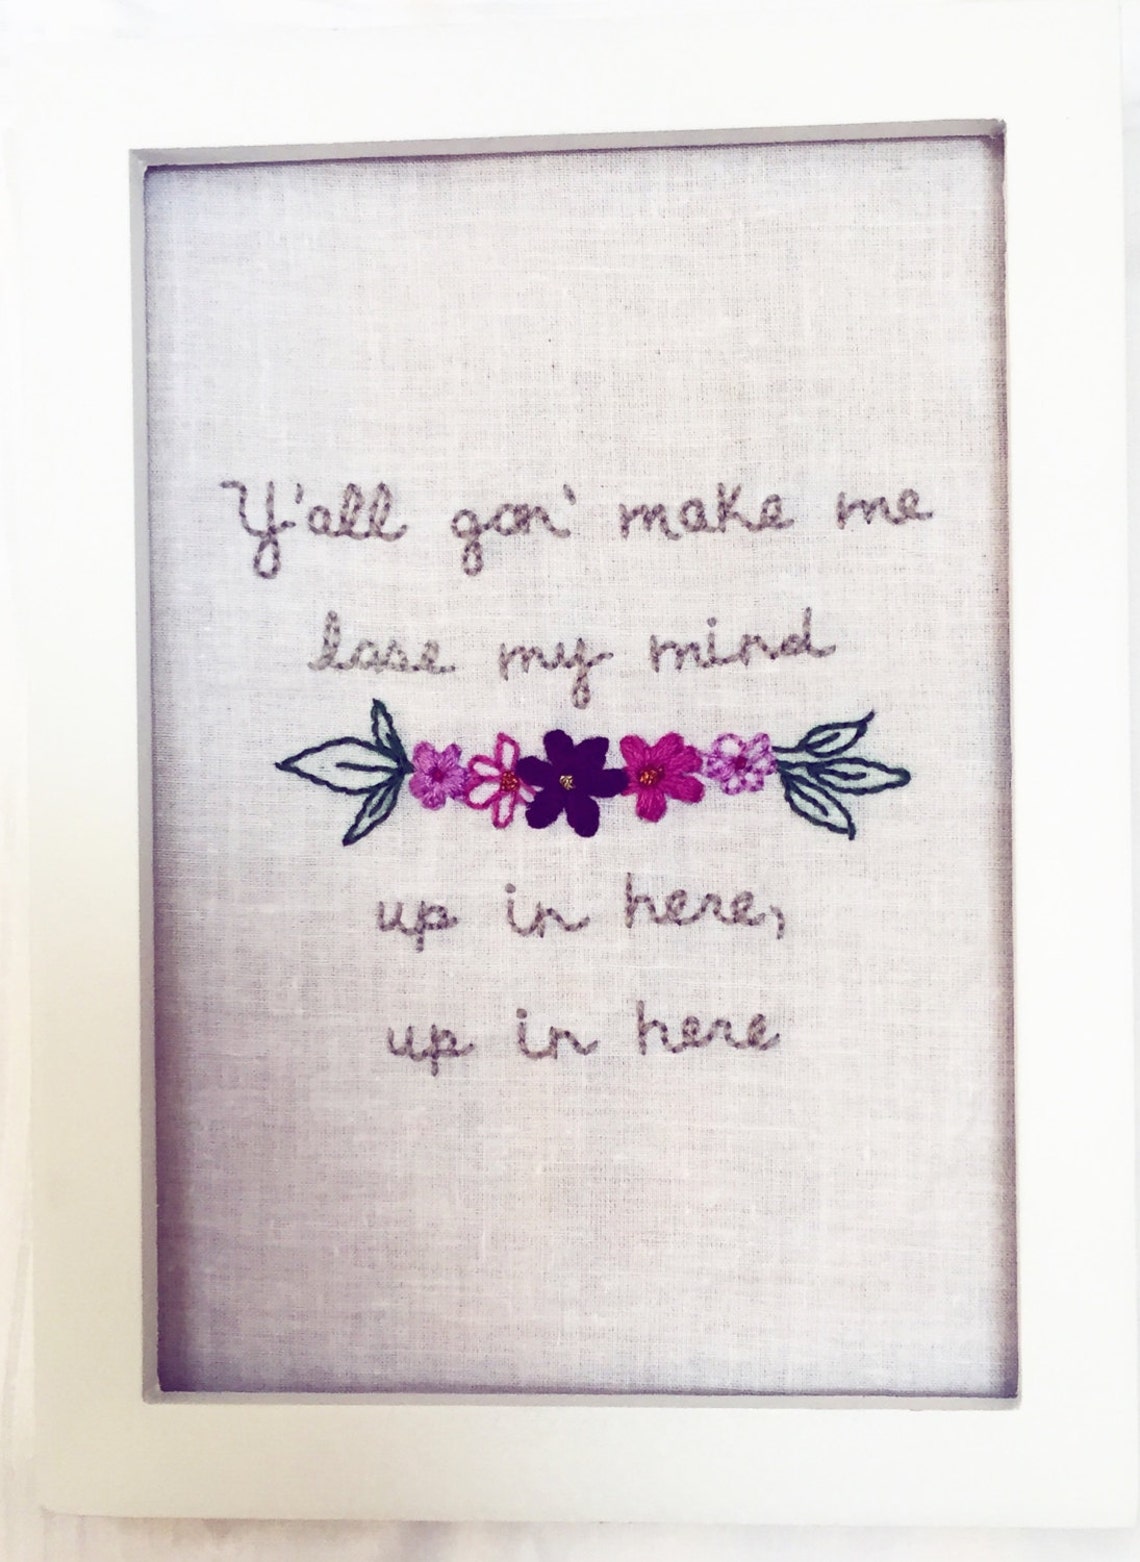 Y'all gon' make me
lose my mind
up in here,
up in here